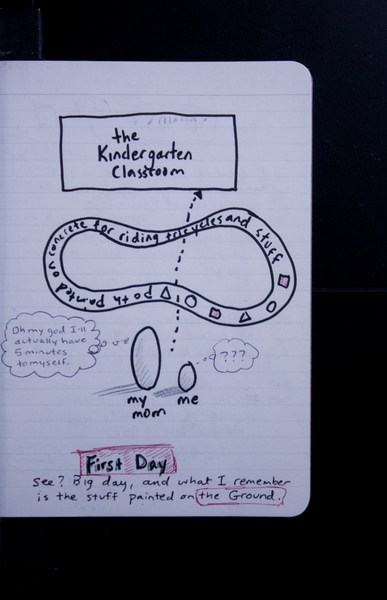 the
Kindergarten
Classroom
path painted on concrete for riding tricycles and stuff
Oh my god I'll
actually have
5 minutes
to myself.
???
my
mom
me
First Day
See? Big day, and what I remember
is the stuff painted on the Ground.